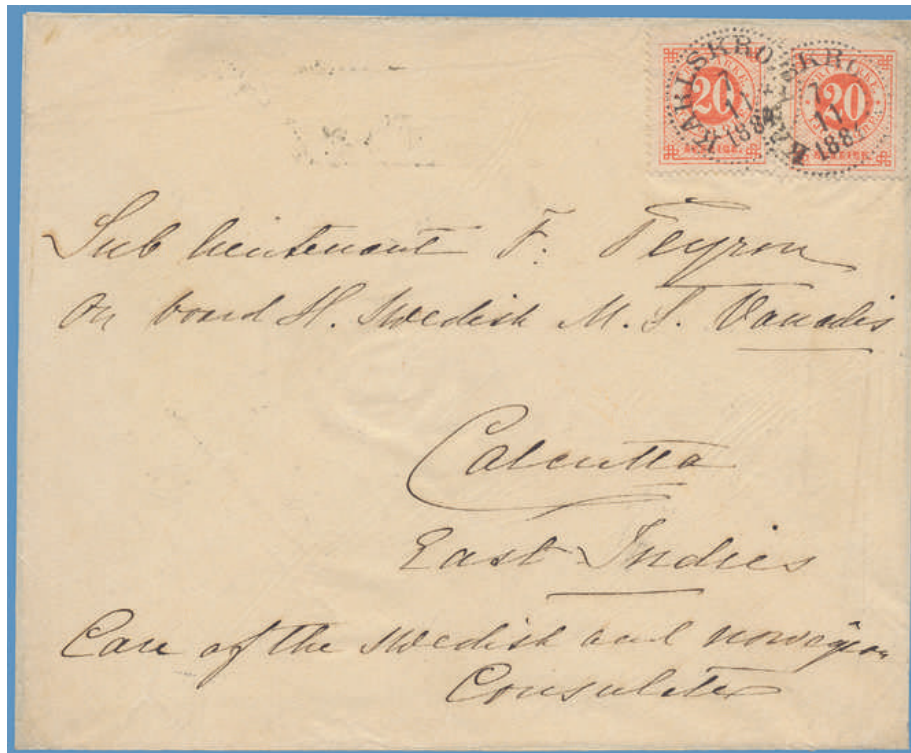 KARLSKRO
7
11
1884
20
KARLSKRO
7
11
188
20
Sub lieutenant F. Peyron
On board H. Swedish M. S. Vanadis
Calcutta
East Indies
Care of the Swedish and norwegian
Consulate